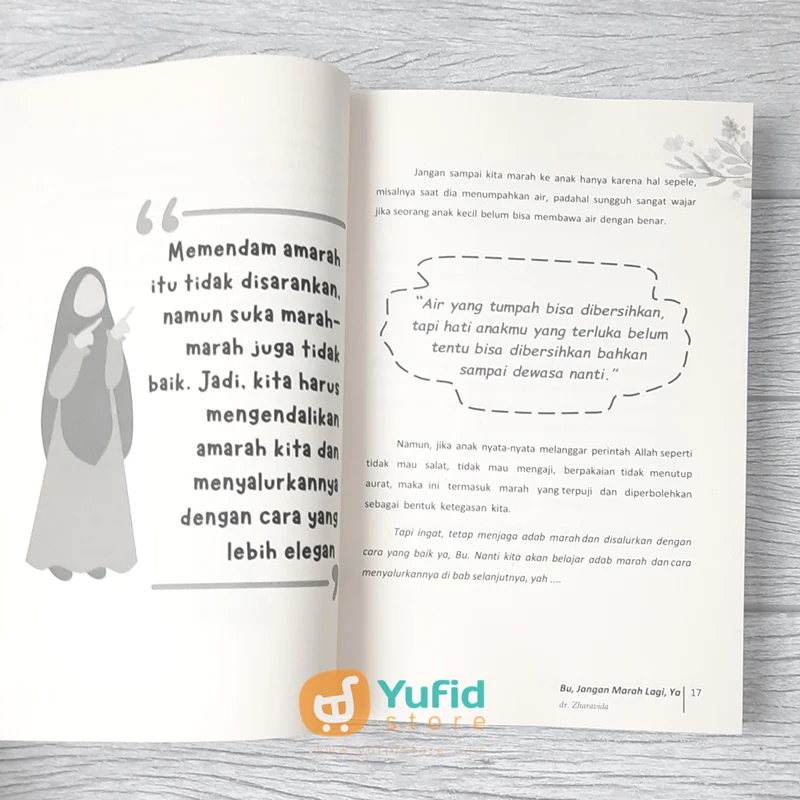 “
Memendam amarah
itu tidak disarankan,
namun suka marah-
marah juga tidak
baik. Jadi, kita harus
mengendalikan
amarah kita dan
menyalurkannya
dengan cara yang
lebih elegan
Jangan sampai kita marah ke anak hanya karena hal sepele,
misalnya saat dia menumpahkan air, padahal sungguh sangat wajar
jika seorang anak kecil belum bisa membawa air dengan benar.
“Air yang tumpah bisa dibersihkan,
tapi hati anakmu yang terluka belum
tentu bisa dibersihkan bahkan
sampai dewasa nanti.“
Namun, jika anak nyata-nyata melanggar perintah Allah seperti
tidak mau salat, tidak mau mengaji, berpakaian tidak menutup
aurat, maka ini termasuk marah yang terpuji dan diperbolehkan
sebagai bentuk ketegasan kita.
Tapi ingat, tetap menjaga adab marah dan disalurkan dengan
cara yang baik ya, Bu. Nanti kita akan belajar adab marah dan cara
menyalurkannya di bab selanjutnya, yah ....
Bu, Jangan Marah Lagi, Ya 17
dr. Zharavida
Yufid
store
www.yufidstore.com